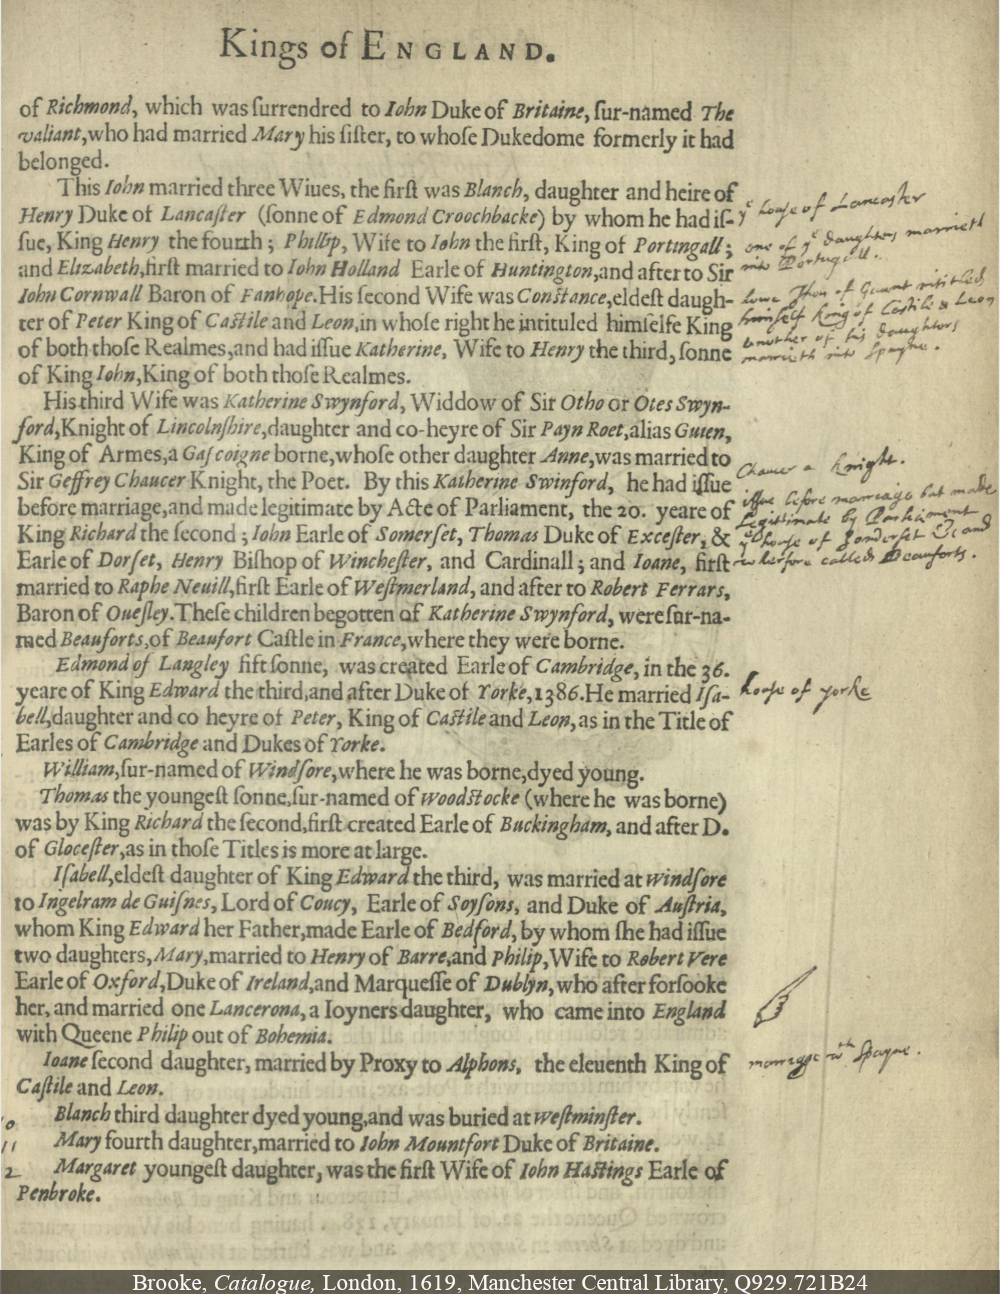 Kings of ENGLAND.
of Richmond, which was ſurrendred to Iohn Duke of Britaine, ſur-named The
valiant,who had married Mary his ſiſter, to whoſe Dukedome formerly it had
belonged.
This Iohn married three Wiues, the firſt was Blanch, daughter and heire of
Henry Duke of Lancaſter (ſonne of Edmond Croochbacke) by whom he had iſ-
ſue, King Henry the fourth ; Phillip, Wife to Iohn the firſt, King of Portingall ;
and Elizabeth,firſt married to Iohn Holland Earle of Huntington,and after to Sir
Iohn Cornwall Baron of Fanhope.His ſecond Wife was Conſtance,eldeſt daugh-
ter of Peter King of Caſtile and Leon,in whoſe right he intituled himſelfe King
of both thoſe Realmes,and had iſſue Katherine, Wife to Henry the third, ſonne
of King Iohn,King of both thoſe Realmes.
yͤ house of Lancaster
one of yͤ daughters marrieth
into Portugall.
Ihon of Gaunt intitled
himself king of Castile & Leon
another of his daughters
marrieth into Spayne.
His third Wife was Katherine Swynford, Widdow of Sir Otho or Otes Swyn-
ford,Knight of Lincolnſhire,daughter and co-heyre of Sir Payn Roet,alias Guien,
King of Armes,a Gaſcoigne borne,whoſe other daughter Anne,was married to
Sir Geffrey Chaucer Knight, the Poet. By this Katherine Swinford, he had iſſue
before marriage,and made legitimate by Acte of Parliament, the 20. yeare of
King Richard the ſecond ; Iohn Earle of Somerſet, Thomas Duke of Exceſter, &
Earle of Dorſet, Henry Biſhop of Wincheſter, and Cardinall ; and Ioane, firſt
married to Raphe Neuill,firſt Earle of Weſtmerland, and after to Robert Ferrars,
Baron of Oueſley.Theſe children begotten of Katherine Swynford, were ſur-na-
med Beauforts,of Beaufort Caſtle in France,where they were borne.
Chaucer a knight.
issue before marriage but made
legittimate by Parliament
yͤ house of Somerset &c and
wherfore called Beauforts.
Edmond of Langley fift ſonne, was created Earle of Cambridge, in the 36.
yeare of King Edward the third,and after Duke of Yorke,1386.He married Iſa-
bell,daughter and co heyre of Peter, King of Caſtile and Leon,as in the Title of
Earles of Cambridge and Dukes of Yorke.
house of yorke
William,ſur-named of Windſore,where he was borne,dyed young.
Thomas the youngeſt ſonne,ſur-named of Woodſtocke (where he was borne)
was by King Richard the ſecond,firſt created Earle of Buckingham, and after D.
of Gloceſter,as in thoſe Titles is more at large.
Iſabell,eldeſt daughter of King Edward the third, was married at Windſore
to Ingelram de Guiſnes, Lord of Coucy, Earle of Soyſons, and Duke of Auſtria,
whom King Edward her Father,made Earle of Bedford, by whom ſhe had iſſue
two daughters,Mary,married to Henry of Barre,and Philip,Wife to Robert Vere
Earle of Oxford,Duke of Ireland,and Marqueſſe of Dublyn, who after forſooke
her, and married one Lancerona, a Ioyners daughter, who came into England
with Queene Philip out of Bohemia.
Ioane ſecond daughter, married by Proxy to Alphons, the eleuenth King of
Caſtile and Leon.
marriage wth Spayne.
10 Blanch third daughter dyed young,and was buried at Weſtminſter.
11 Mary fourth daughter,married to Iohn Mountfort Duke of Britaine.
2 Margaret youngeſt daughter, was the firſt Wife of Iohn Haſtings Earle of
Penbroke.
Brooke, Catalogue, London, 1619, Manchester Central Library, Q929.721B24